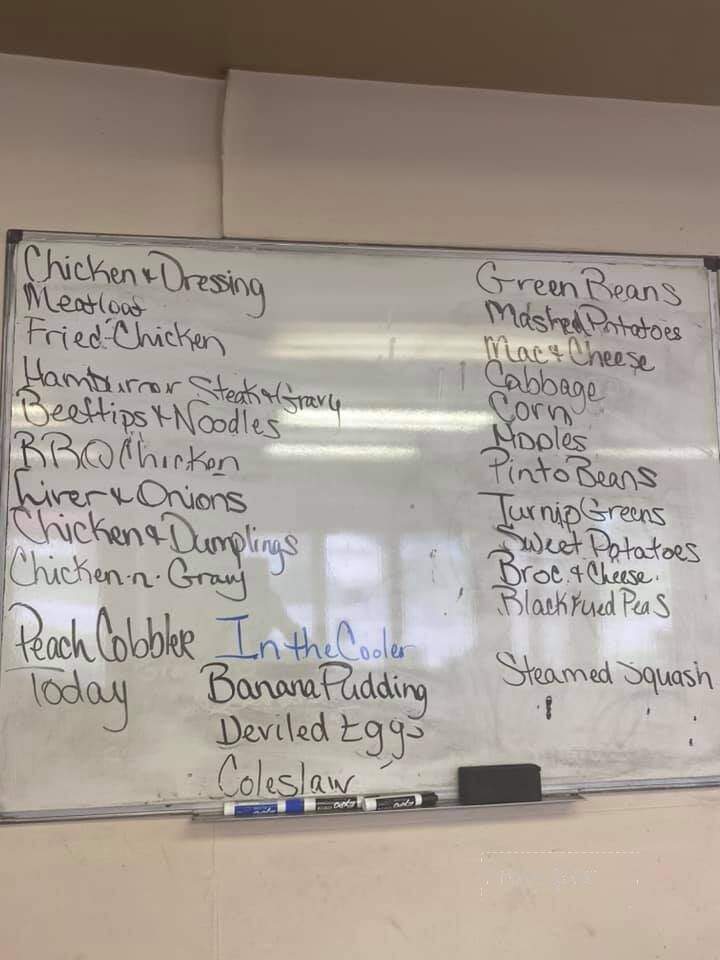 Chicken & Dressing
Meatloaf
Fried Chicken
Hamburger Steak & Gravy
Beeftips & Noodles
BBQ Chicken
Liver & Onions
Chicken & Dumplings
Chicken-n-Gravy
Peach Cobbler
Today
In the Cooler
Banana Pudding
Deviled Eggs
Coleslaw
Green Beans
Mashed Potatoes
Mac & Cheese
Cabbage
Corn
Apples
Pinto Beans
Turnip Greens
Sweet Potatoes
Broc. & Cheese.
Black Eyed Peas
Steamed Squash
expo
expo
expo